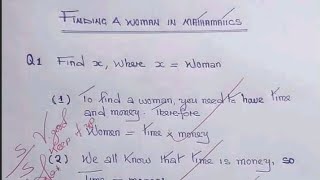 FINDING A WOMAN IN MATHAMATICS
Q1 Find x, where x = Woman
(1) To find a woman, you need to have time
and money. Therefore
Women = time x money
(2) We all know that time is money, so
time = money
good